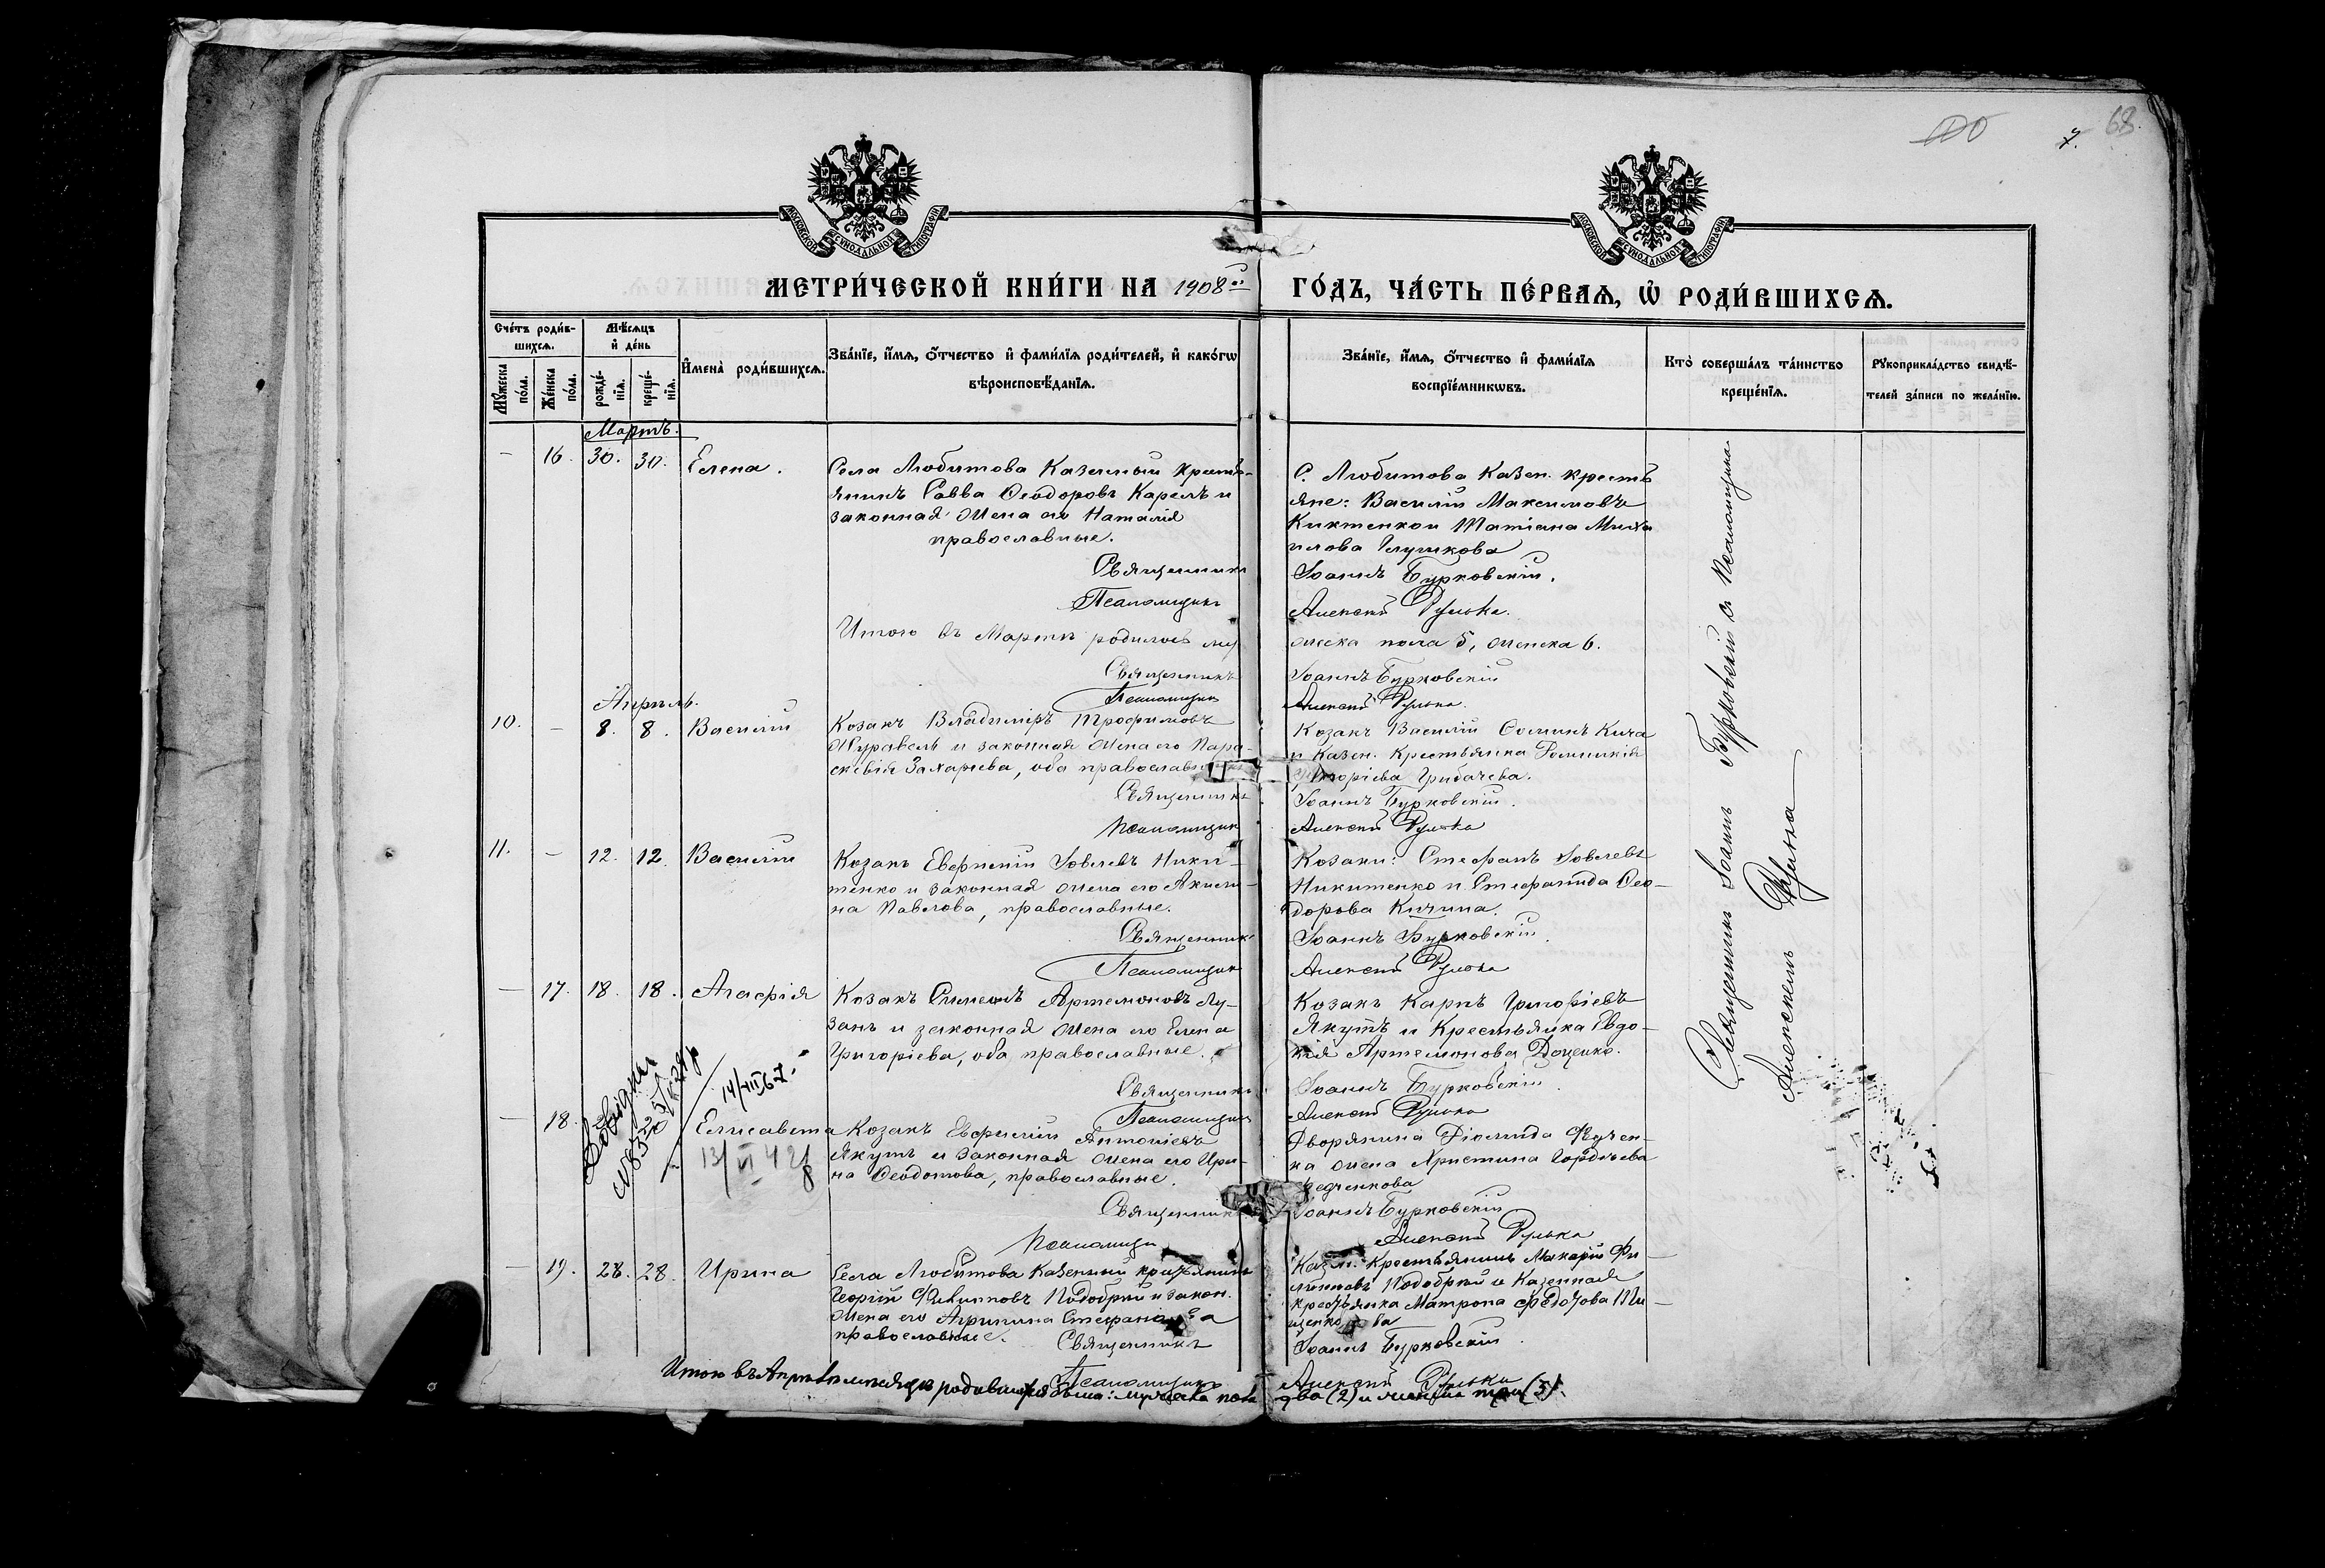 68.
7.
МОСКОВСКОЙ СѴНОДАЛЬНОЙ ТИПОГРАФІИ
МОСКОВСКОЙ СѴНОДАЛЬНОЙ ТИПОГРАФІИ
МЕТРИ́ЧЕСКОЙ КНИ́ГИ НА 1908й ГО́ДЪ, ЧА́СТЬ ПЕ́РВАѦ, Ѡ҆ РОДИ́ВШИХСѦ.
Сче́тъ роди́в-
шихсѧ.
Мꙋ́жеска по́ла.
Же́нска по́ла.
Мѣ́сѧцъ
и҆ де́нь
рожде́-
нїѧ.
креще́-
нїѧ.
И҆мена̀ роди́вшихсѧ.
Зва́нїе, и҆́мѧ, ѻ҆́тчество и҆ фами́лїѧ роди́телей, и҆ како́гѡ
вѣроисповѣ́данїѧ.
Зва́нїе, и҆́мѧ, ѻ҆́тчество и҆ фами́лїѧ
воспрїе́мникѡвъ.
Кто̀ соверша́лъ та́инство
креще́нїѧ.
Рꙋкоприкла́дство свидѣ́-
телей за́писи по жела́нїю.
Мартъ.
– 16. 30. 30. Елена.
Села Любитова Казенный крестья-
янинъ Савва Ѳеодоровъ Карель и
законная жена его Наталія
православные.
Священникъ
Псаломщикъ
С. Любитова Казен. кресть
яне: Василій Максимовъ
Кихтенко и Татіана Миха
илова Глушкова
Іоаннъ Бурковскій.
Алексѣй Рулька.
Итого въ Мартѣ родилось му
жеска пола 5, женска 6.
Священникъ Іоаннъ Бурковскій
Псаломщикъ Алексѣй Рулька.
Апрѣль.
10. – 8. 8. Василій
Козакъ Владиміръ Трофимовъ
Журавель и законная жена его Пара-
скевія Захаріева, оба православные
Священникъ
Псаломщикъ
Козакъ Василій Кича
и Казен. Крестьянка
Григоріева Грибачева.
Іоаннъ Бурковскій.
Алексѣй Рулька
11. – 12. 12. Василій
Козакъ Евфимій Іовлевъ Ники-
тенко и законная жена его Акили-
на Павлова, православные.
Священникъ
Псаломщикъ
Козаки: Стефанъ Іовлевъ
Никитенко и Стефанида Ѳео-
дорова Кичина.
Іоаннъ Бурковскій.
Алексѣй Рулька
– 17. 18. 18. Агафія
Козакъ Симеонъ Артемоновъ Лу-
занъ и законная жена его Елена
Григоріева, оба православные.
Священникъ
Псаломщикъ
Козакъ Карпъ Григоріевъ
Якутъ и Крестьянка Евдо-
кія Артемонова Доценко.
Іоаннъ Бурковскій.
Алексѣй Рулька
14/VII 67.
– 18. Елисавета
13/VI 42
Козакъ Евфимій Антоніевъ
Якутъ и законная жена его Ири-
на Ѳеодотова, православные.
Священникъ
Псаломщи
Дворянина Діомида Федчен-
ка жена Христина Гордѣева
Федченкова
Іоаннъ Бурковскій
Алексѣй Рулька
– 19. 28. 28. Ирина
Села Любитова Казенный крестьянинъ
Георгій Филипповъ Подобрій и закон.
жена его Агрипина Стефанова
православные.
Священникъ
Псаломщикъ
Казен. Крестьянинъ Макарій Фи-
липповъ Подобрій и Казенная
крестьянка Матрона Федотова Пи-
щенкова
Іоаннъ Бурковскій.
Алексѣй Рулька
Итого въ Апрѣлѣ мѣсяцѣ родившихся было: мужеска пола два (2) и женска три (3).
Священникъ Іоаннъ Бурковскій и Псаломщикъ
Алексѣй Рулька